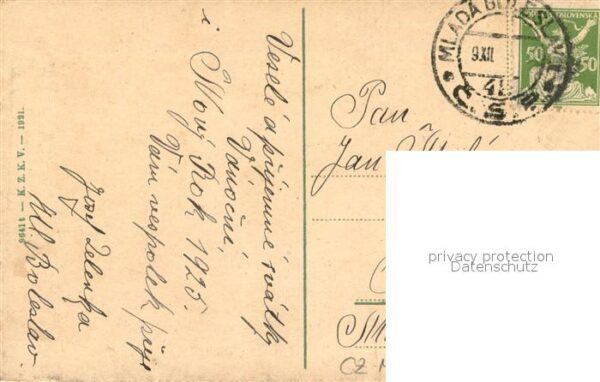 Veselé a příjemné svátky
Vánoční
i Nový Rok 1925.
Vám vespolek přeje
Josef Zelenka
Ml. Boleslav.
9641t — K. Z. K. V. — 1921.
Pan
Jan
MLADÁ BOLESLAV
9.XII
Č.S.P.
ČESKOSLOVENSKÁ
50 50
privacy protection
Datenschutz
CZ-M